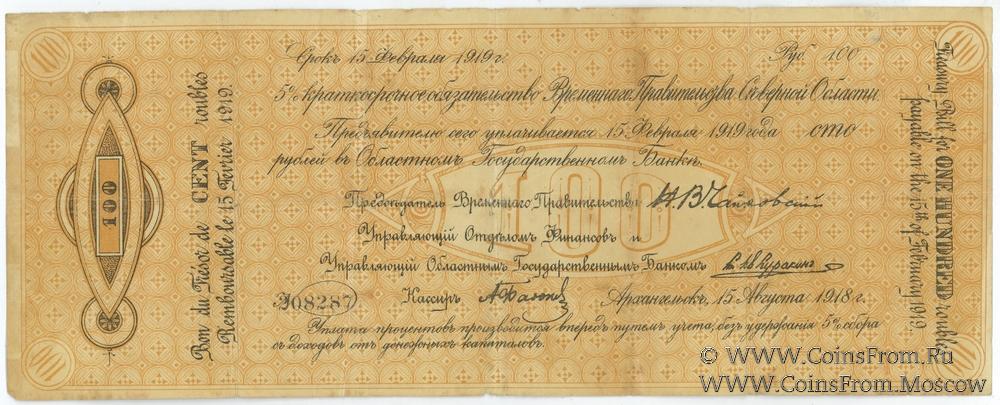 Срокъ 15 Февраля 1919 г. Руб. 100
5% краткосрочное обязательство Временнаго Правительства Сѣверной Области.
Предъявителю сего уплачивается 15 Февраля 1919 года сто
рублей въ Областномъ Государственномъ Банкѣ.
100
Предсѣдатель Временнаго Правительства Н. В. Чайковский
Управляющій Отдѣломъ Финансовъ и
Управляющій Областнымъ Государственнымъ Банкомъ
Кассиръ
Архангельскъ, 15 Августа 1918 г.
108287
Уплата процентовъ производится впередъ путемъ учета, безъ удержанія 5% сбора
съ доходовъ отъ денежныхъ капиталовъ.
100
Bon du Trésor de CENT roubles
Remboursable le 15 Février 1919.
Treasury Bill for ONE HUNDRED roubles
payable on the 15th of February 1919.
100
100
100
100
© www.CoinsFrom.Ru
www.CoinsFrom.Moscow